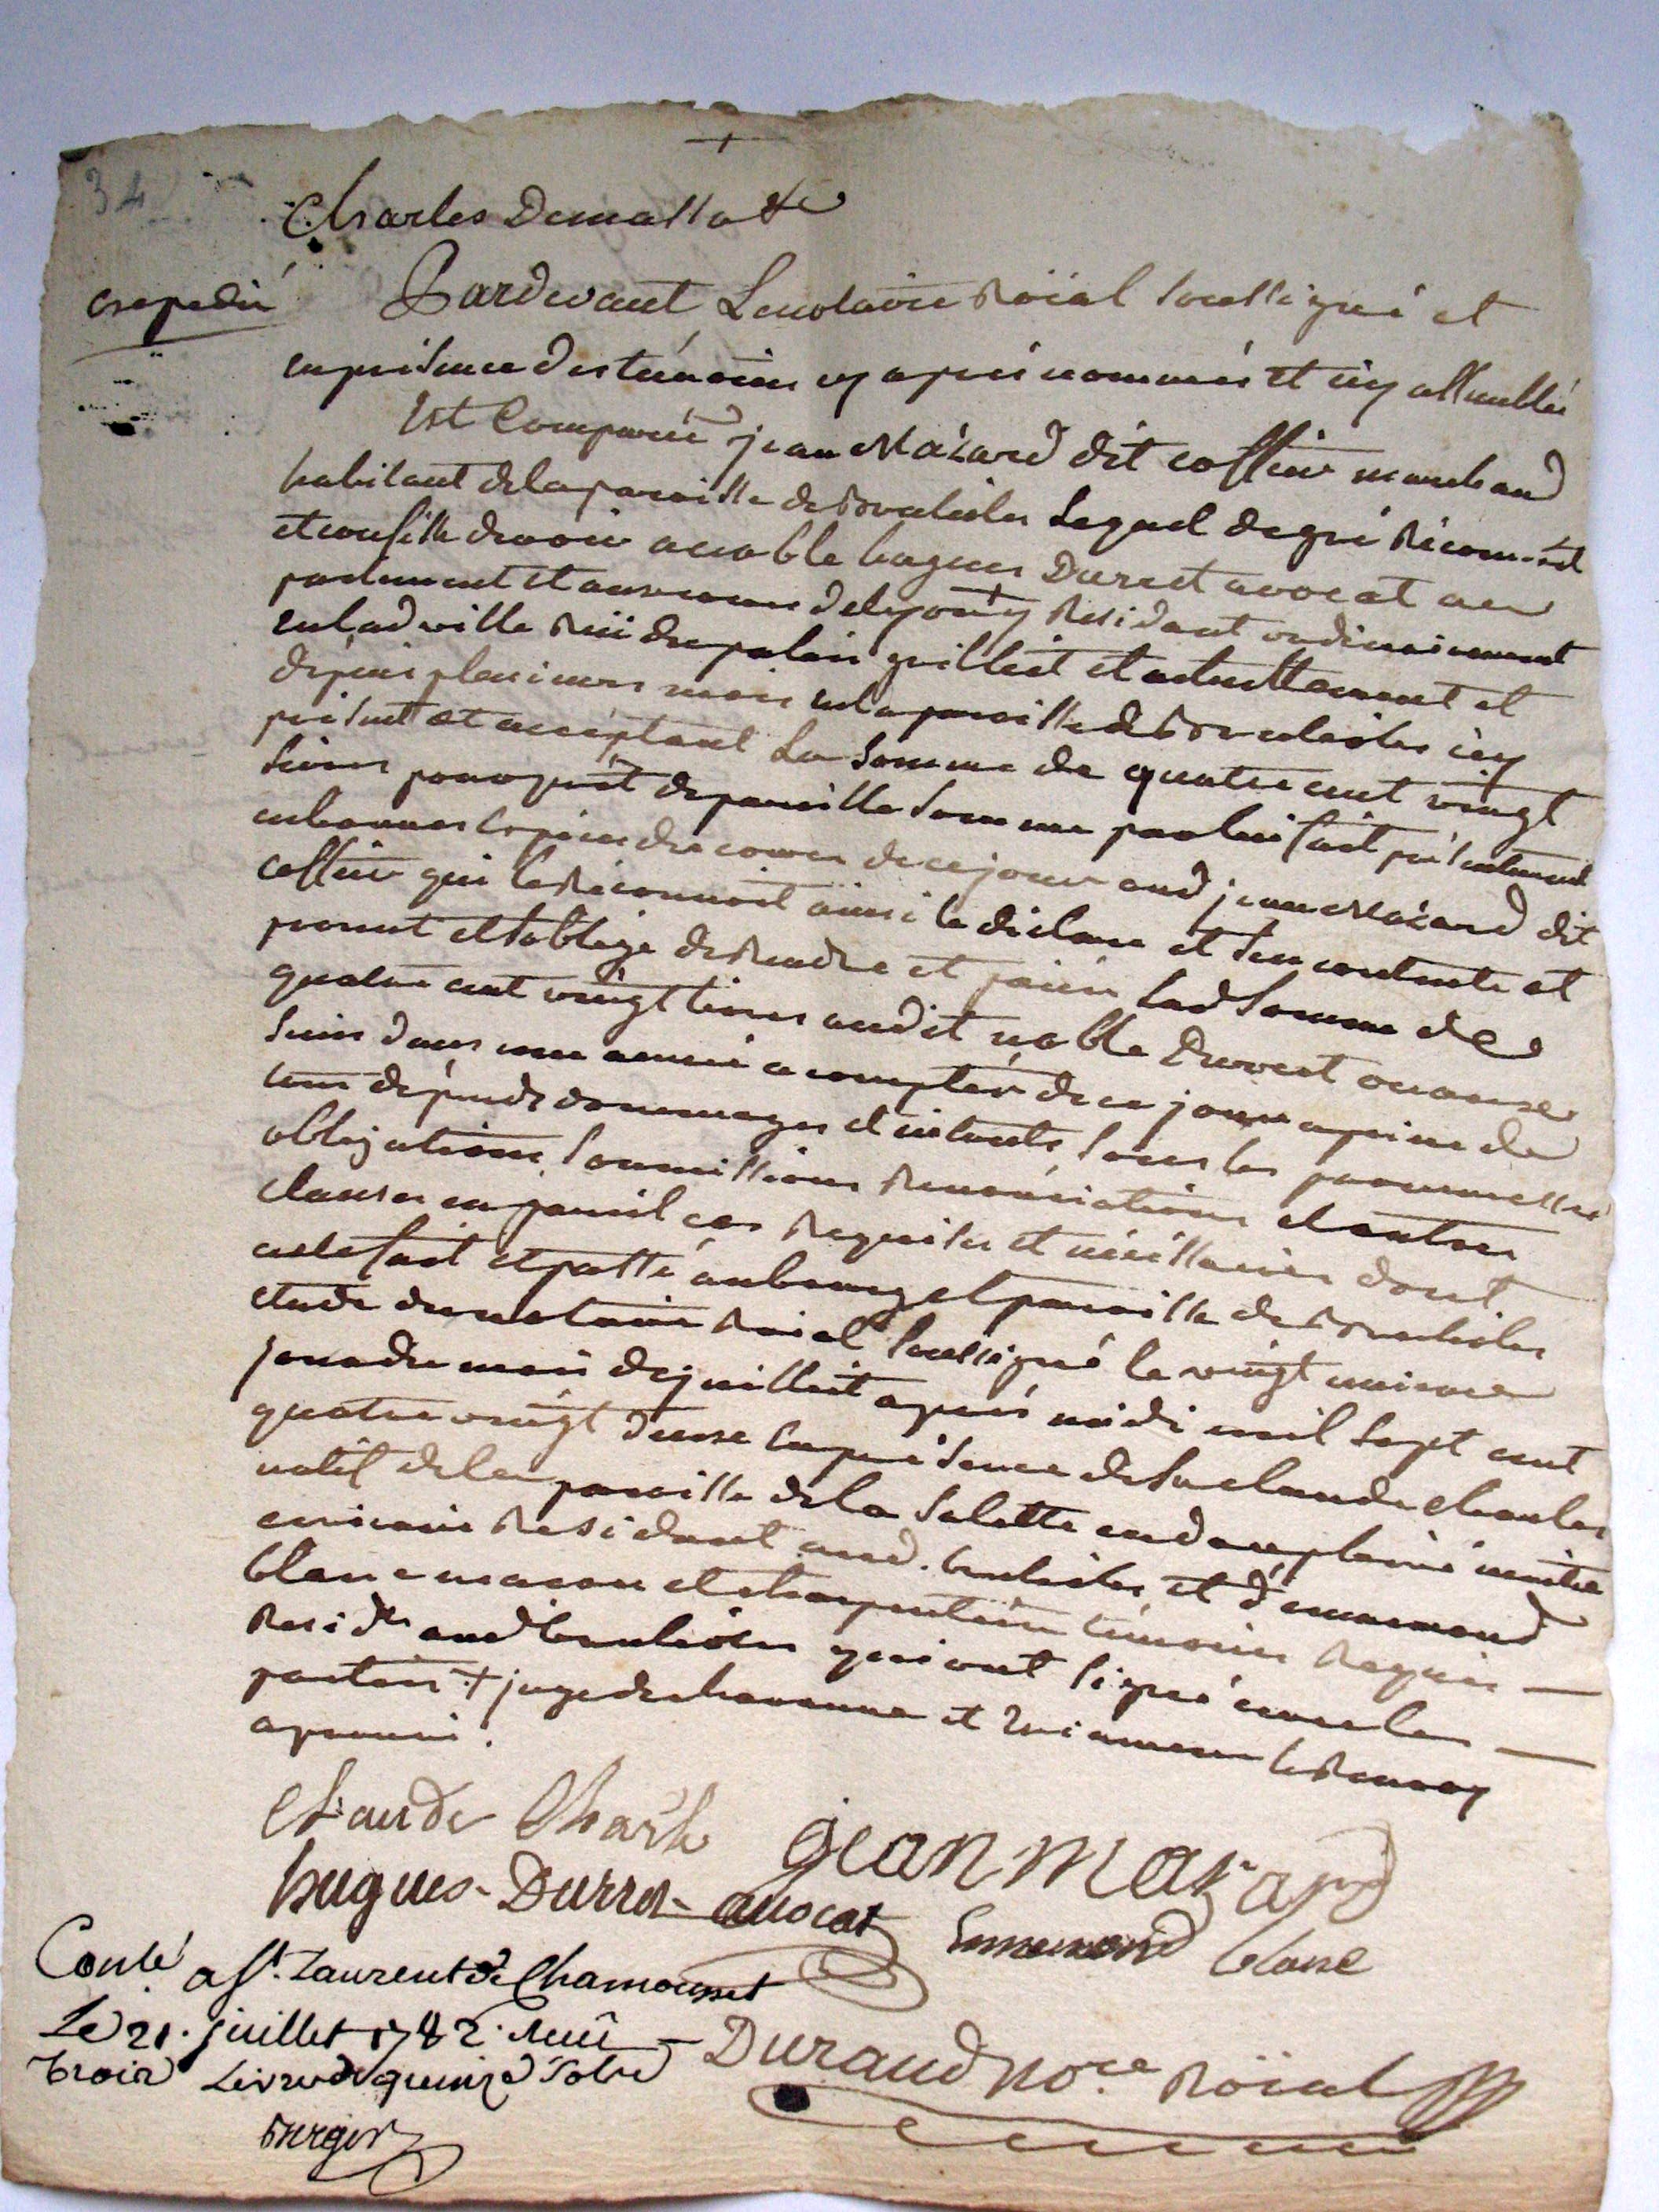 34
Charles Demassotte
Expedié
Pardevant Le notaire Roïal soussigné et
en présence des témoins cy après nommés et icy assemblés
Est Comparu jean Mazard dit coffier marchand
habitant de la paroisse de Brulioles Lequel de gré Réconnoit
et confesse devoir a noble hugues Durret avocat au
parlement et aux cours de lyon + y Résidant ordinairement
en lad ville Ruë du palais grillet et actuellement et
depuis plusieurs mois en la paroisse de Brulioles icy
présent et acceptant La somme de quatre cent vingt
livres pour prêt de pareille somme par lui fait présentement
en bonnes espèces du cours de ce jour aud jean Mazard dit
coffier qui le Réconnoit ainsi le déclare et s'en contente et
promet et s'oblige de Rendre et païer Lad somme de
quatre cent vingt livres audit noble Durret ou aux
siens dans une année a compter de ce jour a peine de
tous dépends dommages et intérêts sous les promesses
obligations, soumissions Renonciations et autres
clauses en pareil cas Requises et nécéssaires dont
acte fait et passé au bourg et paroisse de Brulioles
etude du notaire Roial soussigné le vingt unieme
jour du mois de juillet après midi mil sept cent
quatre vingt deux En présence de Sr claude charles
natif de la paroisse de la Salette en dauphiné maitre
ecrivain Residant aud. brulioles, et d'ennemond
blanc macon et charpentier témoins Requis —
Residts aud brulioles qui ont signé avec les —
parties + juge de chavanne et Le Renvoy
aprouvé.
Claude Charle
jean mazard
hugues Durret avocat
Ennemond blanc
Conlé a St. Laurent de Chamousset
Le 21. juillet 1782. Reçu
trois Livres quinze Sols
Durand nore Roïal
Burger